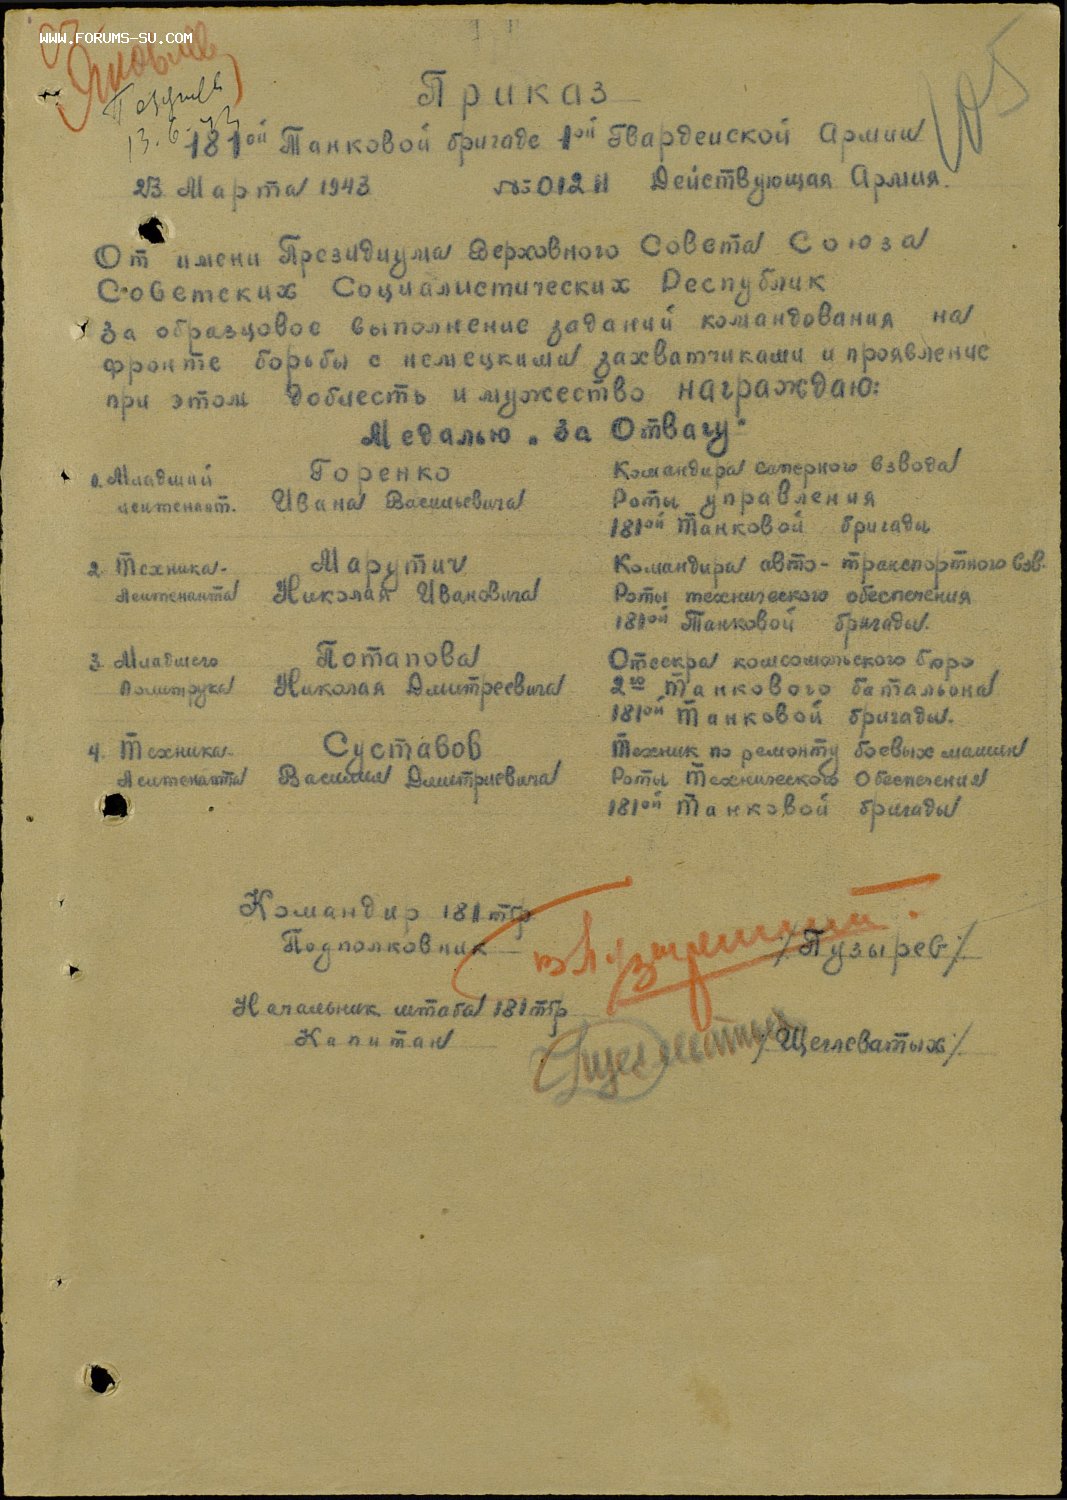 www.forums-su.com
13.6.43
105
Приказ
181ой Танковой бригаде 1ой Гвардейской Армии
23 Марта 1943 №012 Н Действующая Армия.
От имени Президиума Верховного Совета Союза
Советских Социалистических Республик
за образцовое выполнение заданий командования на
фронте борьбы с немецкими захватчиками и проявление
при этом доблесть и мужество награждаю:
Медалью „За Отвагу"
1. Младший Горенко Командира саперного взвода
лейтенант. Ивана Васильевича Роты управления
181ой Танковой бригады
2. Техника- Марутич Командира авто-транспортного взв.
Лейтенанта Николая Ивановича Роты технического обеспечения
181ой Танковой бригады.
3. Младшего Потапова Отсекра комсомольского бюро
Политрука Николая Дмитреевича 2го Танкового батальона
181ой Танковой бригады.
4. Техника- Суставов Техник по ремонту боевых машин
Лейтенанта Василия Дмитриевича Роты Технического Обеспечения
181ой Танковой бригады
Командир 181 тбр
Подполковник /Пузырев/
Начальник штаба 181 тбр
Капитан /Щеглеватых/